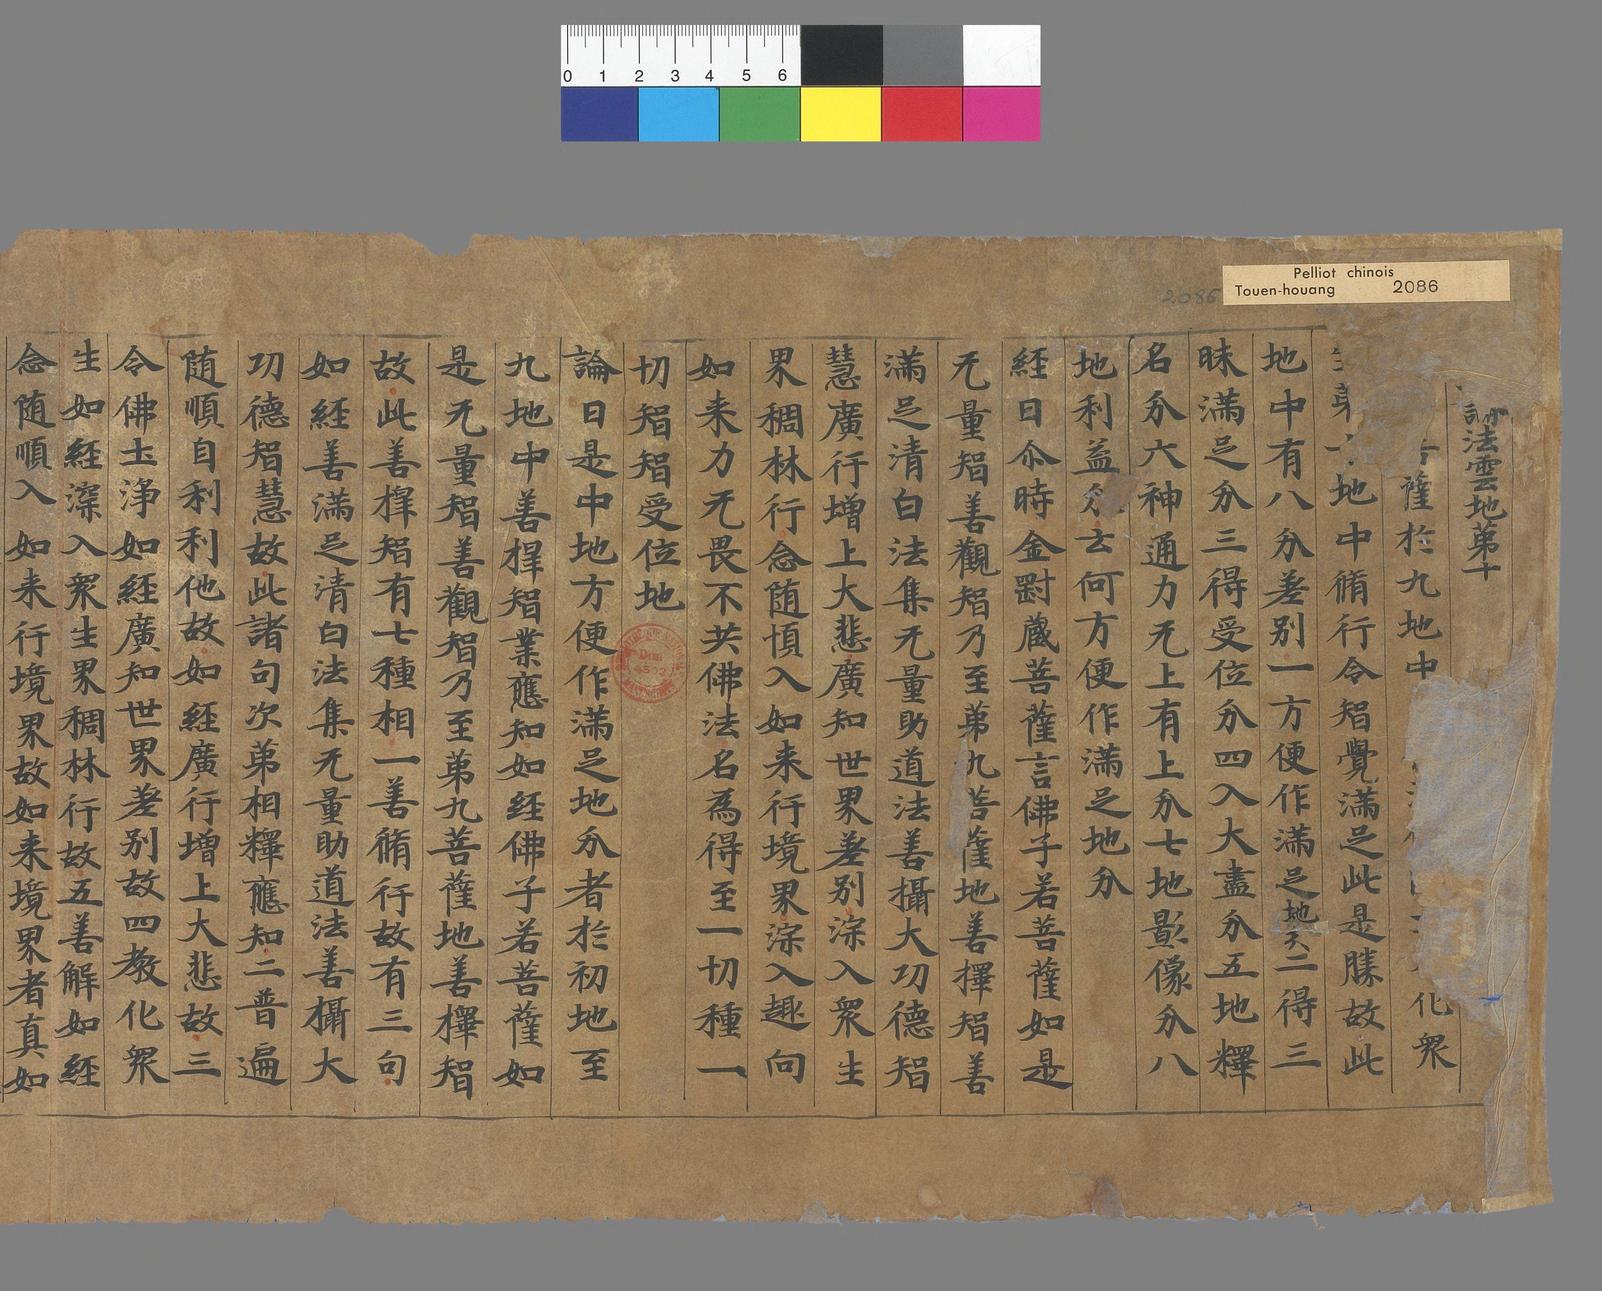 0 1 2 3 4 5 6
Pelliot chinois
Touen-houang 2086
2086
法雲地第十
薩於九地中 化衆
地中脩行令智覺滿足此是勝故此
地中有八分差别一方便作滿足地分二得三
昧滿足分三得受位分四入大盡分五地釋
名分六神通力无上有上分七地影像分八
地利益分云何方便作滿足地分
經曰尒時金剛藏菩薩言佛子若菩薩如是
无量智善觀智乃至苐九菩薩地善擇智善
滿足清白法集无量助道法善攝大功德智
慧廣行増上大悲廣知世界差别深入衆生
界稠林行念随順入如来行境界深入趣向
如来力无畏不共佛法名為得至一切種一
切智智受位地
論曰是中地方便作滿足地分者於初地至
九地中善擇智業應知如經佛子若菩薩如
是无量智善觀智乃至苐九菩薩地善擇智
故此善擇智有七種相一善脩行故有三句
如經善滿足清白法集无量助道法善攝大
功德智慧故此諸句次苐相釋應知二普遍
随順自利利他故如經廣行増上大悲故三
令佛土淨如經廣知世界差别故四教化衆
生如經深入衆生界稠林行故五善解如經
念随順入如来行境界故如来境界者真如